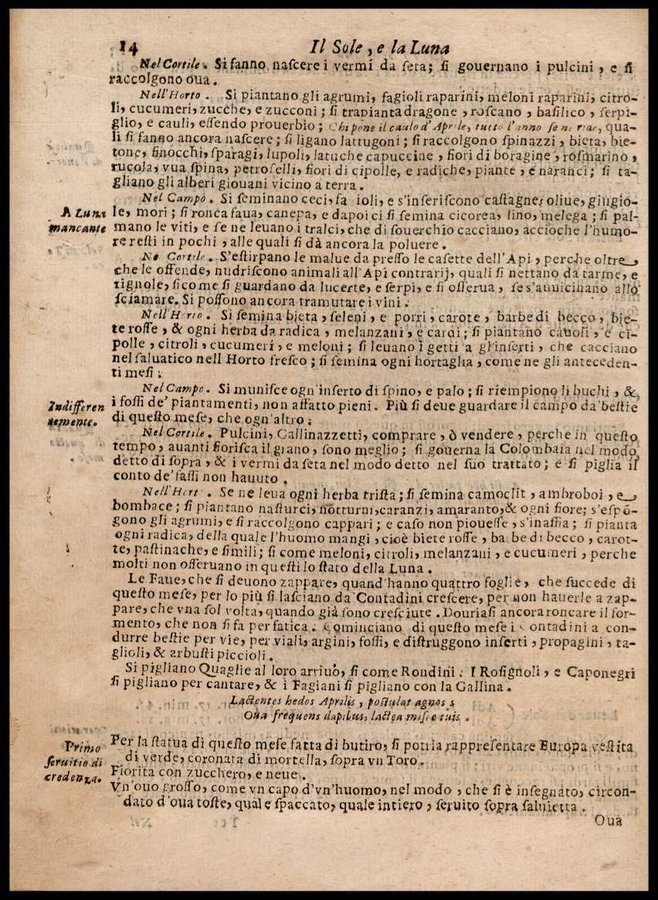 14 Il Sole, e la Luna
Nel Cortile. Si fanno naſcere i vermi da ſeta; ſi gouernano i pulcini, e ſi
raccolgono oua.
Nell'Horto. Si piantano gli agrumi, fagioli raparini, meloni raparini, citro-
li, cucumeri, zucche, e zucconi; ſi trapianta dragone, roſcano, baſilico, ſerpi-
glio, e cauli, eſſendo prouerbio; Chi pone il caulo d'Aprile, tutto l'anno ſe ne ride, qua-
li ſi fanno ancora naſcere; ſi ligano lattugoni; ſi raccolgono ſpinazzi, bieta, bie-
tone, finocchi, ſparagi, lupoli, latuche capuccine, fiori di boragine, roſmarino,
rucola, vua ſpina, petroſelli, fiori di cipolle, e radiche, piante, e naranci; ſi ta-
gliano gli alberi giouani vicino a terra.
A Luna
mancante
Nel Campo. Si ſeminano ceci, fa ioli, e s'inſeriſcono caſtagne, oliue, giugio-
le, mori; ſi ronca faua, canepa, e dapoi ci ſi ſemina cicorea, lino, melega; ſi pal-
mano le viti, e ſe ne leuano i tralci, che di ſouerchio cacciano, accioche l'humo-
re reſti in pochi, alle quali ſi dà ancora la poluere.
Ne Cortile. S'eſtirpano le malue da preſſo le caſette dell'Api, perche oltre
che le offende, nudriſcono animali all'Api contrarij, quali ſi nettano da tarme, e
tignole, ſicome ſi guardano da lucerte, e ſerpi, e ſi oſſerua, ſe s'auuicinano allo
ſciamare. Si poſſono ancora tramutare i vini.
Nell'Horto. Si ſemina bieta, ſeleni, e porri, carote, barbe di becco, bie-
te roſſe, & ogni herba da radica, melanzani, e cardi; ſi piantano cauoli, e ci-
polle, citroli, cucumeri, e meloni; ſi leuano i getti a gl'inſerti, che cacciano
nel ſaluatico nell Horto freſco; ſi ſemina ogni hortaglia, come ne gli anteceden-
ti meſi:
Indifferen
temente.
Nel Campo. Si muniſce ogn'inſerto di ſpino, e palo; ſi riempiono li buchi, &
i foſſi de' piantamenti, non affatto pieni. Più ſi deue guardare il campo da'beſtie
di queſto meſe, che ogn'altro.
Nel Cortile. Pulcini, Gallinazzetti, comprare, ò vendere, perche in queſto
tempo, auanti fioriſca il grano, ſono meglio; ſi gouerna la Colombaia nel modo
detto di ſopra, & i vermi da ſeta nel modo detto nel ſuo trattato; e ſi piglia il
conto de'faſſi non hauuto.
Nell'Hort. Se ne leua ogni herba triſta; ſi ſemina camoclit, ambroboi, e
bombace; ſi piantano naſturci, notturni, caranzi, amaranto, & ogni fiore; s'eſpō-
gono gli agrumi, e ſi raccolgono cappari; e caſo non pioueſſe, s'inaffia; ſi pianta
ogni radica, della quale l'huomo mangi, cioè biete roſſe, barbe di becco, carot-
te, paſtinache, e ſimili; ſi come meloni, citroli, melanzani, e cucumeri, perche
molti non oſſeruano in queſti lo ſtato della Luna.
Le Faue, che ſi deuono zappare, quand'hanno quattro foglie, che ſuccede di
queſto meſe, per lo più ſi laſciano da'Contadini creſcere, per non hauerle a zap-
pare, che vna ſol volta, quando già ſono creſciute. Douriaſi ancora roncare il for-
mento, che non ſi fa per fatica. Cominciano di queſto meſe i Contadini a con-
durre beſtie per vie, per viali, argini, foſſi, e diſtruggono inſerti, propagini, ta-
glioli, & arbuſti piccioli.
Si pigliano Quaglie al loro arriuo, ſi come Rondini. I Roſignoli, e Caponegri
ſi pigliano per cantare, & i Fagiani ſi pigliano con la Gallina.
Lactentes hedos Aprilis, poſtulat agnos;
Oua frequens dapibus, lactea miſce tuis.
Primo
ſeruitio di
credenza.
Per la ſtatua di queſto meſe fatta di butiro, ſi potria rappreſentare Europa veſtita
di verde, coronata di mortella, ſopra vn Toro.
Fiorita con zucchero, e neue.
Vn'ouo groſſo, come vn capo d'vn'huomo, nel modo, che ſi è inſegnato, circon-
dato d'oua toſte, quale ſpaccato, quale intiero, ſeruito ſopra ſaluietta.
Oua